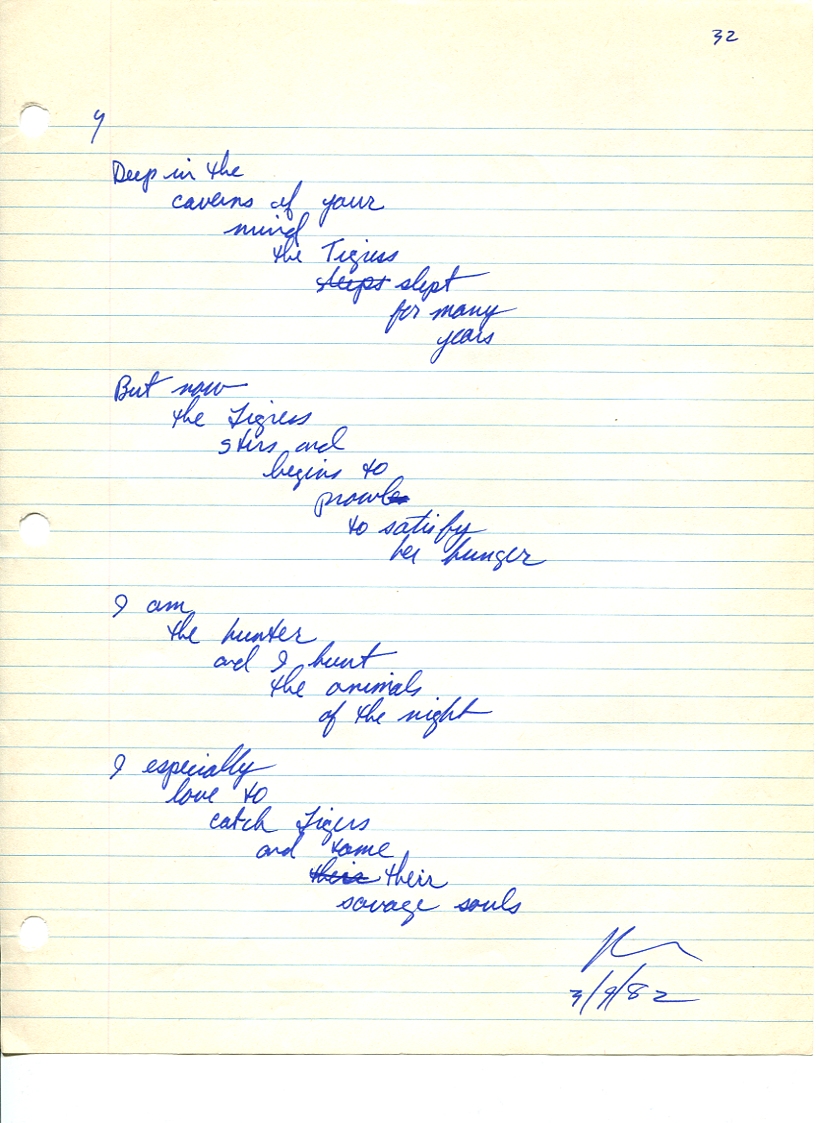 32
9
Deep in the
caverns of your
mind
the Tigress
sleeps slept
for many
years
But now
the Tigress
stirs and
begins to
prowl
to satisfy
her hunger
I am
the hunter
and I hunt
the animals
of the night
I especially
love to
catch Tigers
and tame
their
savage souls
3/9/82